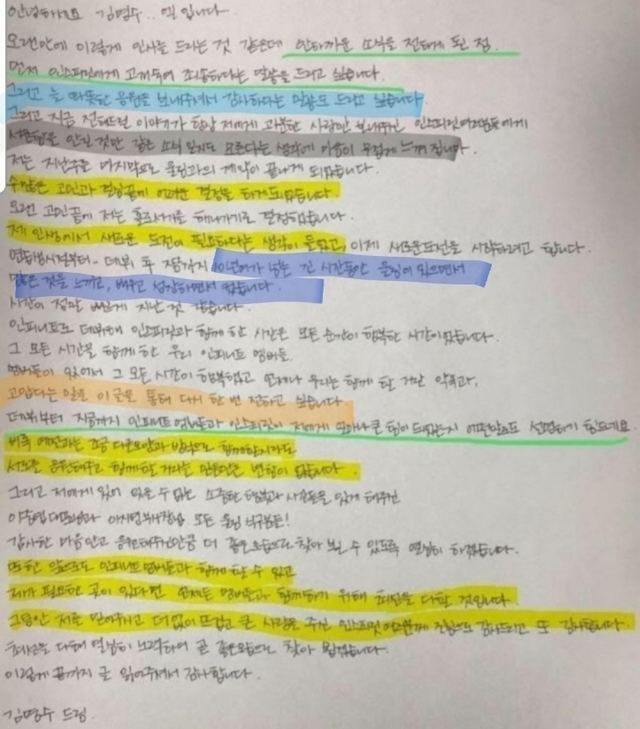 안녕하세요 김명수.. 엘 입니다
오랜만에 이렇게 인사를 드리는 것 같은데 안타까운 소식을 전하게 된 점
먼저 인스피릿에게 고개숙여 죄송하다는 말씀을 드리고 싶습니다.
그리고 늘 따뜻한 응원을 보내주셔서 감사하다는 말씀도 드리고 싶습니다
그리고 지금 전해드릴 이야기가 항상 저에게 과분한 사랑만 보내주신 인스피릿여러분들에게
서운함을 안길 것만 같은 소식 일지도 모른다는 생각에 마음이 무겁게 느껴집니다.
저는 지난주를 마지막으로 울림과의 계약이 끝나게 되었습니다.
수많은 고민과 결상끝에 어려운 결정을 하게되었습니다
오랜 고민끝에 저는 홀로서기를 해나가기로 결정했습니다.
제 인생에서 새로운 도전이 필요하다는 생각이 들었고, 이제 새로운도전을 시작하려고 합니다.
연습생시절부터~ 데뷔 후 지금까지 10년여가 넘는 긴 시간동안 울림에 있으면서
많은 것을 느끼고, 배우고 성장하면서 컸습니다.
시간이 정말 빠르게 지난 것 같습니다.
인피니트로 데뷔해 인스피릿과 함께 한 시간은 모든 순간이 행복한 시간이었습니다.
그 모든 시간을 함께 한 우리 인피니트 멤버들.
멤버들이 있어서 그 모든 시간이 행복했고 언제나 우리는 함께 할 거란 약속과,
고맙다는 말을 이 글을 통해 다시 한 번 전하고 싶습니다
데뷔부터 지금까지 인피니트 멤버들과 인스피릿이 저에게 얼마나 큰 힘이 되었는지 어떤말로도 설명하기 힘드네요.
비록 예전과는 조금 다른모양과 방식으로 함께할지라도
서로를 응원해주고 함께 할 거라는 믿음만은 변함이 없습니다.
그리고 저에게 있어 잊을 수 없는 소중한 행복과 시간들을 있게 해주신
이중엽대표님과 이사님 모든 울림 식구분들!
감사한 마음안고 응원해주신만큼 더 좋은모습으로 찾아 뵐 수 있도록 열심히 하겠습니다.
또한 앞으로도 인피니트 멤버들과 함께 할 수 있고
제가 필요한 곳이 있다면 언제든 멤버들과 함께하기 위해 최선을 다할 것입니다.
그동안 저를 믿어주고 더없이 뜨겁고 큰 사랑을 주신 인스피릿 여러분께 진심으로 감사드리고 또 감사합니다.
최선을 다해 열심히 노력하여 곧 좋은모습으로 찾아 뵙겠습니다.
이렇게 끝까지 글 읽어주셔서 감사합니다.
김명수 드림.